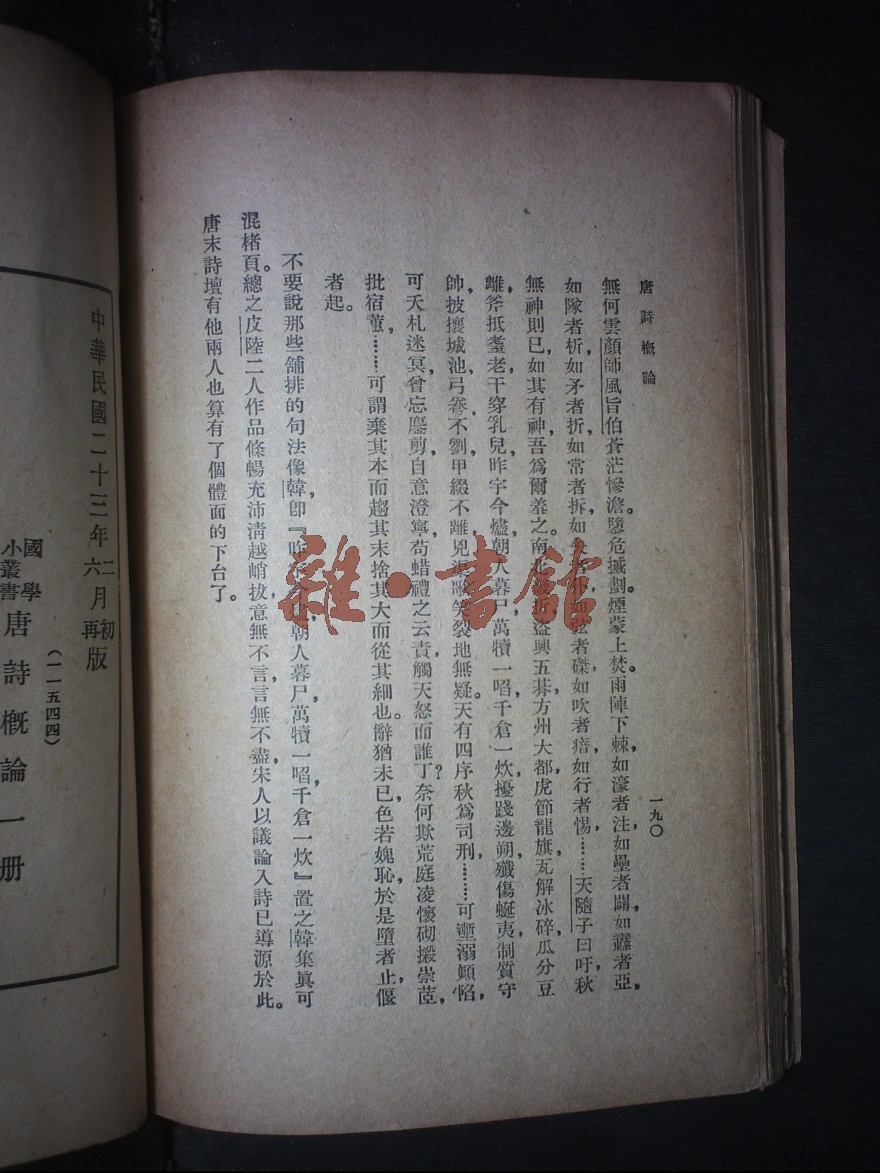 唐詩槪論
一九〇
無何雲顏師風旨伯蒼茫慘澹隳危撼劃煙蒙上焚雨陣下棘如濠者注如壘者闢如纛者亞，
如隊者析如矛者折如常者拆如
者磔如吹者瘖如行者惕……天隨子曰吁秋
無神則已如其有神吾爲爾羞之。南
盜興五朞方州大都虎節龍旗瓦解冰碎瓜分豆
離斧抵耋老干穿乳兒昨宇今燼朝人暮尸萬犢一啗千倉一炊擾踐邊朔殲傷蜒夷制質守
帥披攘城池弓卷不劉甲綴不離兇渠歌笑裂地無疑。天有四序秋爲司刑……可壅溺顚陷，
可夭札迷冥曾忘鏖剪自意澄寧苟蜡禮之云責觸天怒而誰丁？奈何欺荒庭凌懷砌撥崇茝，
批宿蕫……可謂棄其本而趨其末捨其大而從其細也。辭猶未已色若媿恥於是墮者止偃
者起。
不要說那些舖排的句法像韓卽『昨宇今燼，朝人暮尸萬犢一啗，千倉一炊』置之韓集眞可
混楮頁。總之皮陸二人作品條暢充沛淸越峭拔意無不言言無不盡宋人以議論入詩已導源於此。
唐末詩壇有他兩人也算有了個體面的下台了。
雜·書館
中華民國二十三年二月初版
六月再版
(一一五四四)
國學小叢書
唐詩槪論一册